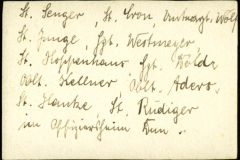 St. Senger, St. Cron, Untvargt. Wolf
St. Junge, Fgt. Westmeyer
St. Hoppenhaus, Fgt. Wöldi
Oblt. Kellner, Oblt. Aders.
St. Hanke, St. Rüdiger
im Offiziersheim Dun.